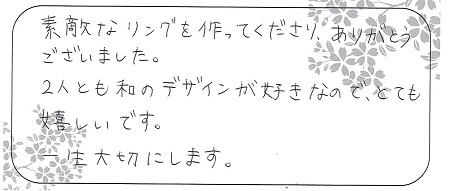 素敵なリングを作ってくださり、ありがとう
ございました。
2人とも和のデザインが好きなので、とても
嬉しいです。
一生大切にします。